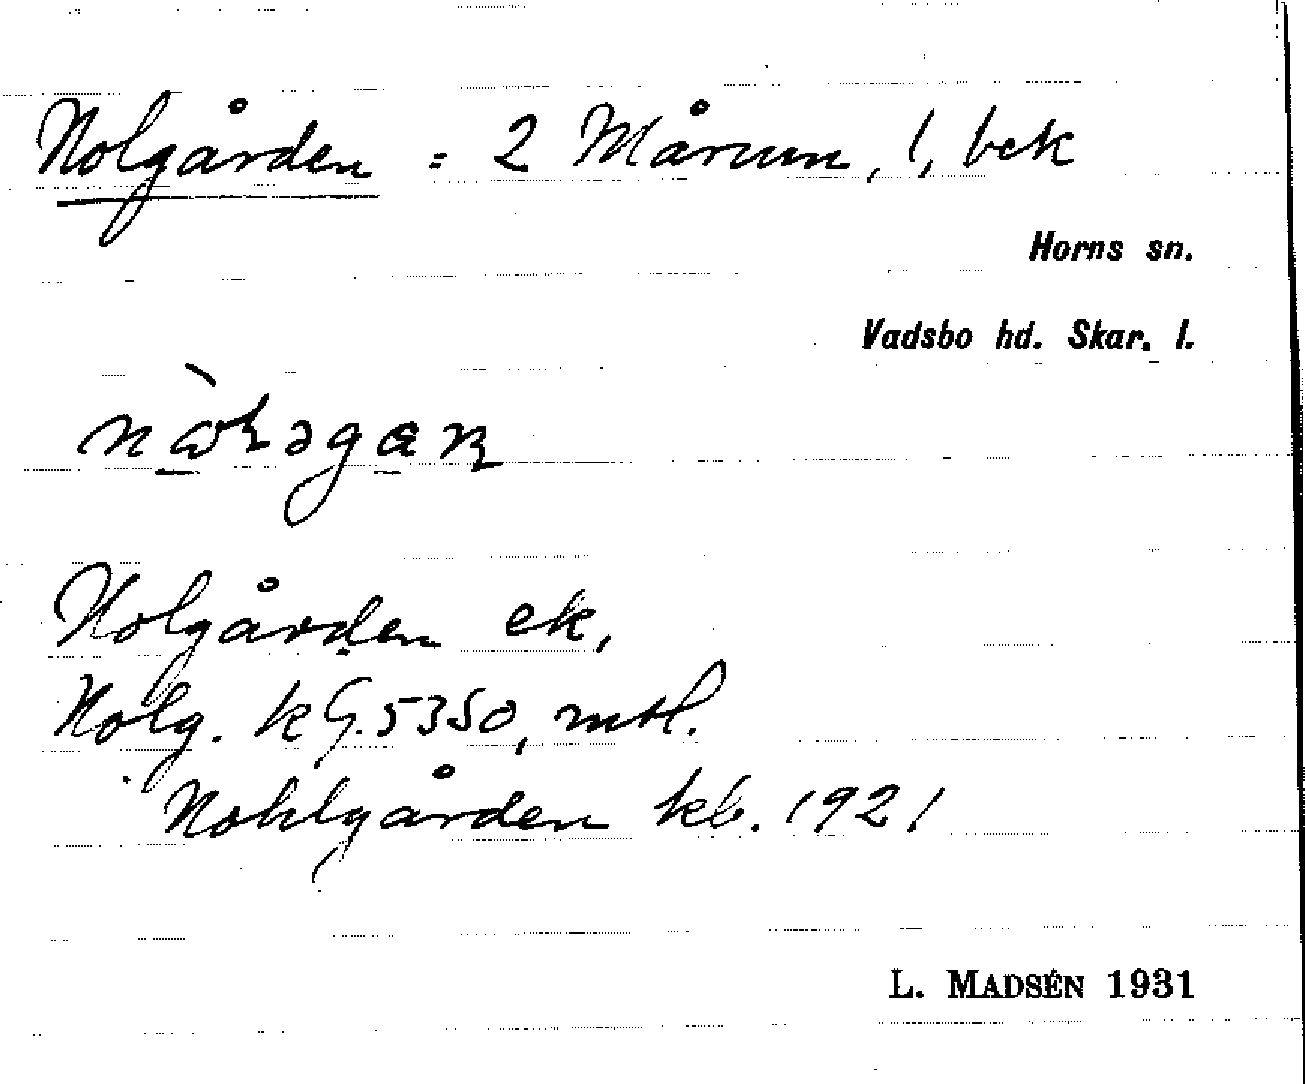 Nolgården = 2 Mårum, 1, bek
Horns sn.
Vadsbo hd. Skar. l.
Nolgården ek,
Nolg. kG. 5350, mtl.
Nohlgården kb. 1921
L. MADSÉN 1931